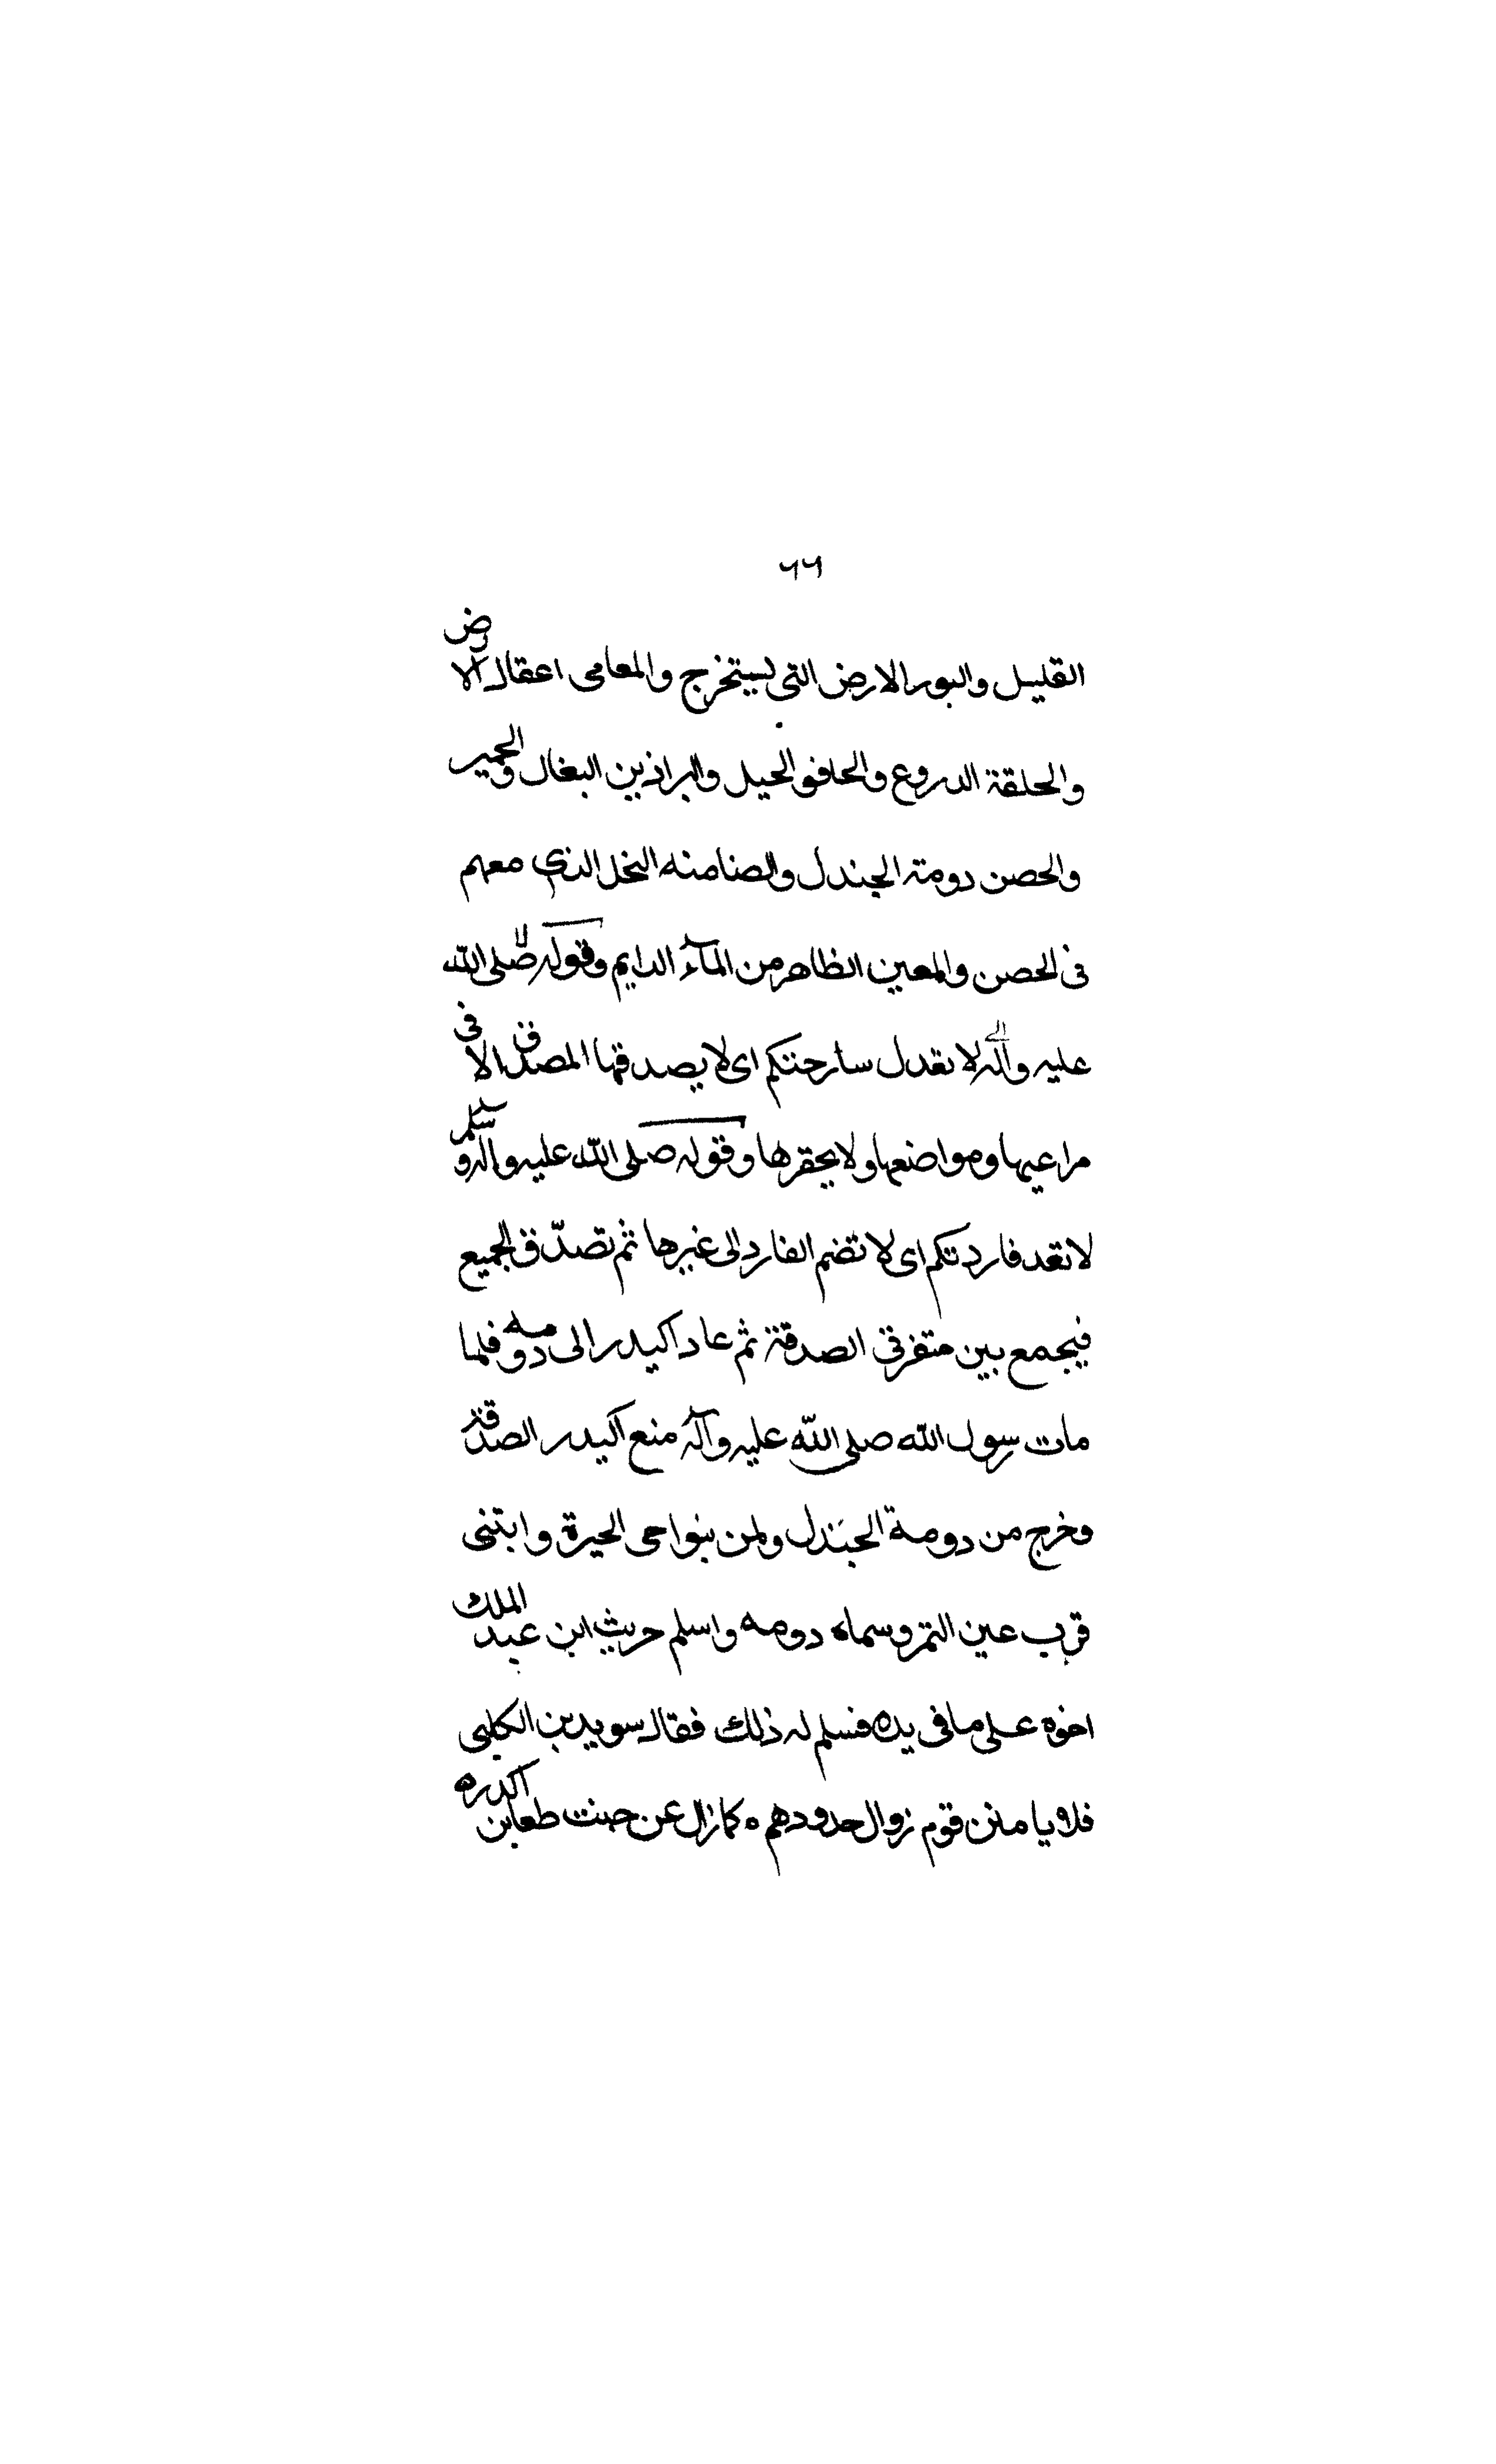 ٢٢
القليل والبور الارض التى يستخرج والمعامى اعقال الارض
والحلقة الدروع والحافر الخيل والبراذين البغال والحمير
والحصن دومة الجندل والضامنه النخل الذى معهم
فى الحصن والمعين الظاهر من المآء الدايم وقوله صلى الله
عليه وآله لا تعدل سارحتكم اى لا يصدقها المصدق الا فى
مراعيها ومواضعها ولا يحقرها وقوله صلى الله عليه واله وسلم
لا تعد فاردتكم اى لا تضم الفارد الى غيرها ثم تصدّق الجميع
فيجمع بين متفرق الصدقة ثم عاد اكيدر الى دومه فلما
مات رسول الله صلى الله عليه وآله منع اكيدر الصدقة
وخرج من دومة الجندل ولمن بنواحى الحيرة وابتنى
قرب عين التمر وسماه دومه واسلم حريث ابن عبد الملك
اخوه على ما فى يده فسلم له ذلك فقال سويد بن الكلبى
فلا يا منن قوم زوال حدودهم ه كما زال عن حنت طعاين اكدره